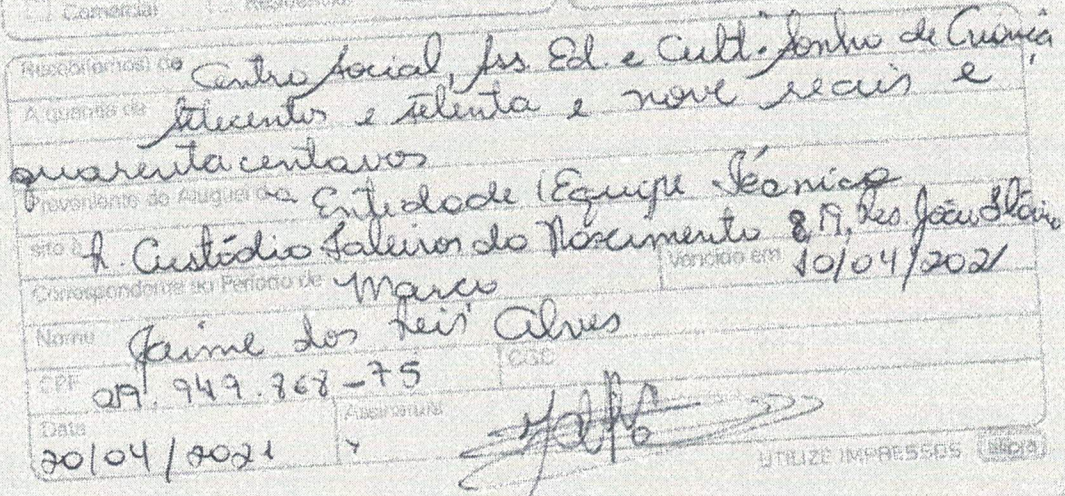 Comercial Residencial
Recebi(emos) de Centro Social, Ass Ed. e Cult. Sonho de Criança,
A quantia de setecentos e setenta e nove reais e
quarenta centavos
Proveniente do Aluguel da Entidade (Equipe Técnica
sito à R. Custódio Faleiros do Nascimento 819, Res. João
Correspondente ao Período de Março Vencido em 10/04/2021
Nome Jaime dos Reis Alves
CPF 019.949.868-75 CGC
Data Assinatura
20/04/2021
UTILIZE IMPRESSOS